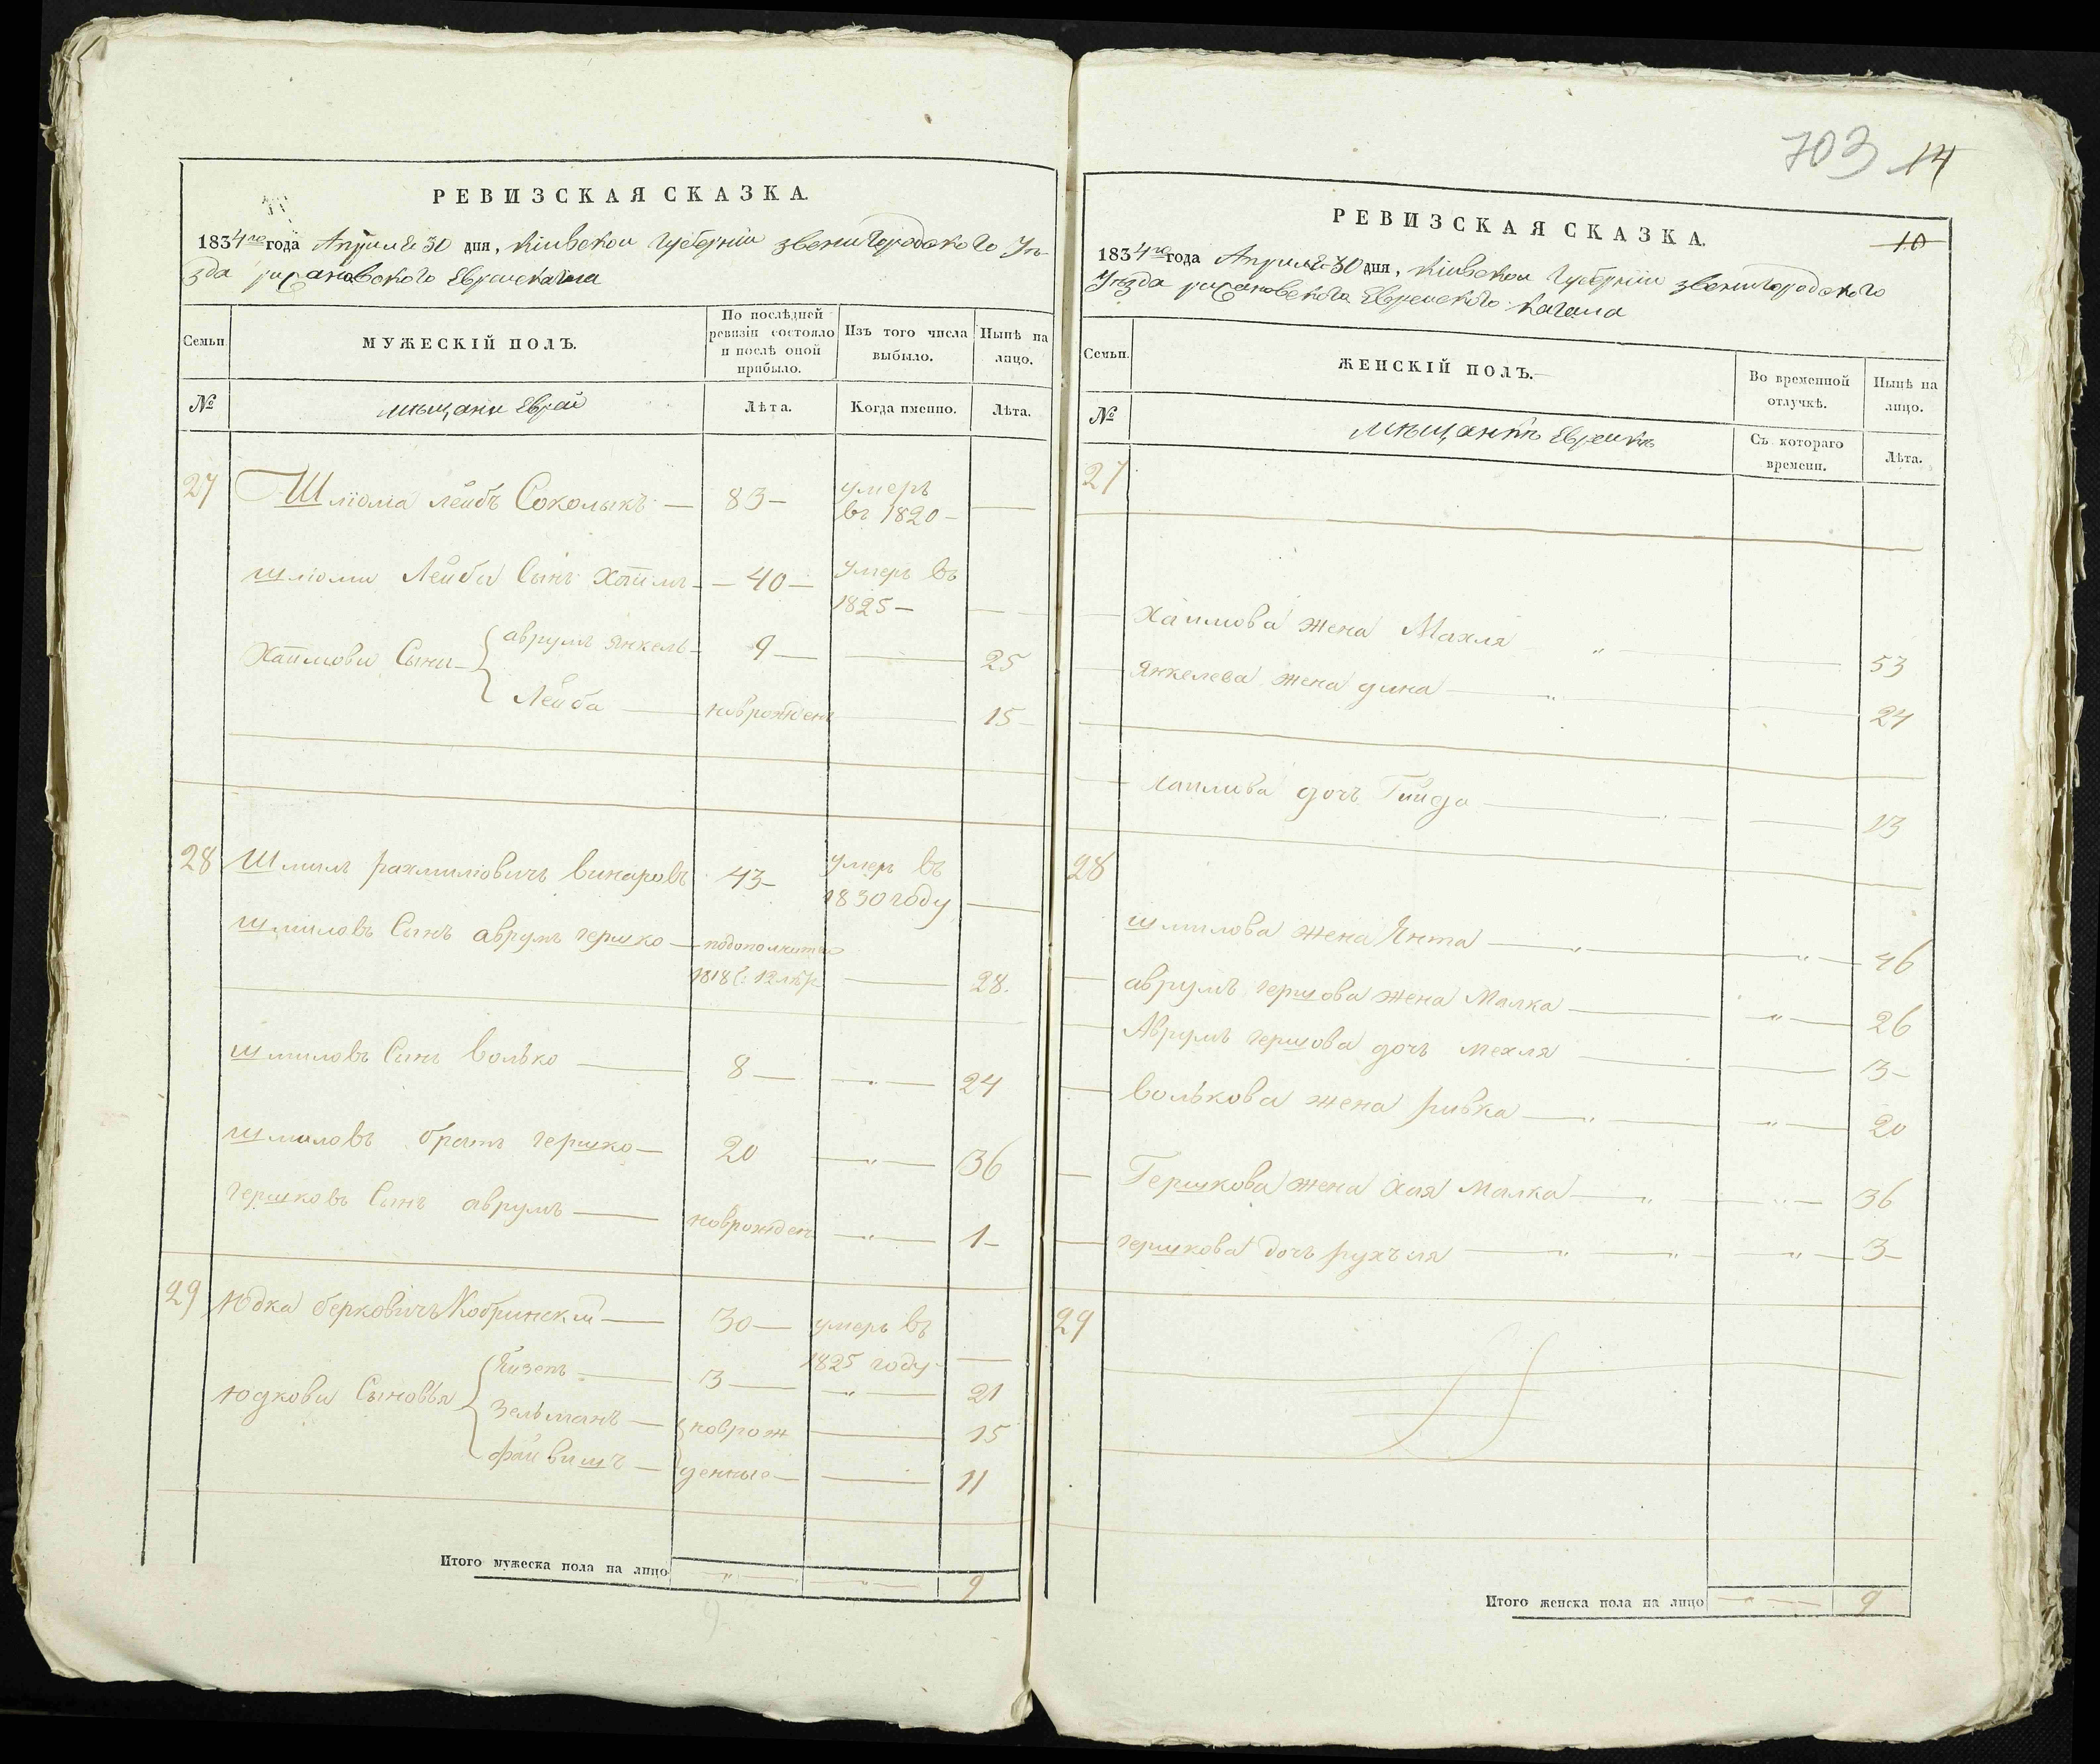 РЕВИЗСКАЯ СКАЗКА.
1834го года Апреля 30 дня, Кіивской Губерніи Звенигородского Уѣ-
зда рижановского Еврейс. Кагала
Семьи
МУЖЕСКІЙ ПОЛЪ.
По послѣдней ревизіи состояло и послѣ оной прибыло.
Изъ того числа выбыло.
Нынѣ на лицо.
№
мещани Евреи
Лѣта.
Когда именно.
Лѣта.
27 Шліома Лейбъ Соколыкъ — 83 — умеръ
въ 1820 —
шліоми Лейби Сынъ Хаимъ — 40 — Умеръ въ
1825 —
Хаимови Сыни — аврумъ янкель — 9 — 25
Лейба — новрожден 15
28 Шмилъ рахмиліовичъ винаровъ 43 — умеръ въ
1830 году
шмиловъ Сынъ аврумъ гершко —
1818 28.
шмиловъ Сынъ волько — 8 — 24
шмиловъ братъ гершко — 20 — 36
гершковъ Сынъ аврумъ — новрожден — 1
29 Юдка берковичъ Кобринскій — 30 — умеръ въ
1825 году
юдкови Сыновья — 3 — 21
Зельманъ — новрож — 15
файвишъ — денные — 11
Итого мужеска пола на лицо 9
703 14
10
РЕВИЗСКАЯ СКАЗКА.
1834го года Апреля 30 дня, Кіивской Губерніи Звенигородского
Уѣзда рижановского Еврейского Кагала
Семьи.
ЖЕНСКІЙ ПОЛЪ.
Во временной отлучкѣ.
Нынѣ на лицо.
№
мѣщанкѣ Еврейкѣ
Съ котораго времени.
Лѣта.
27
Хаимова жена Махля 53
янкелева жена дина 24
хаимова дочь Гинда 13
28
шмилова жена Янта 46
аврумъ гершова жена Малка 26
Аврумъ гершова дочь мехля 3
волькова жена ривка 20
Гершкова жена Хая малка 36
гершкова дочь рухъля 3
29
Итого женска пола на лицо 9